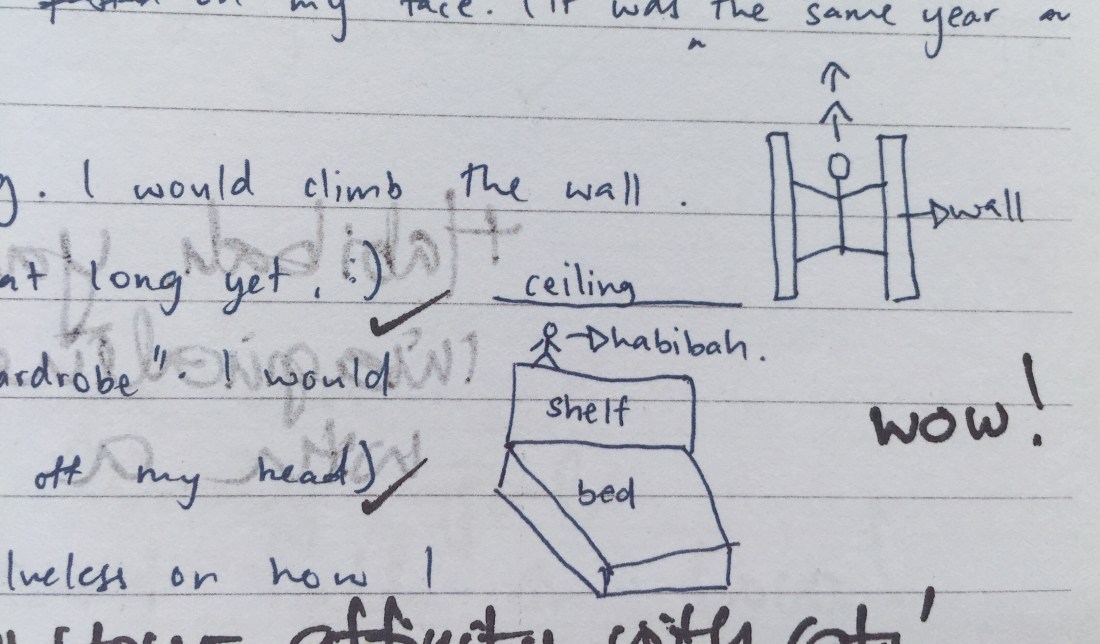 on my face. (it was the same year
g. I would climb the wall.
wall
at long yet. :)
ceiling
habibah.
ardrobe". I would
shelf
wow!
off my head)
bed
lueless on how I
affinity with cats'